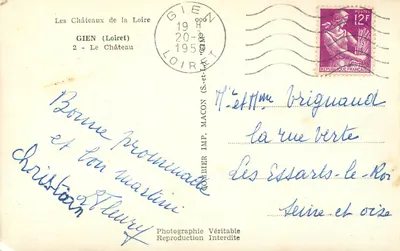 Les Châteaux de la Loire
GIEN (Loiret)
2 - Le Château
GIEN
19 H
20-8
LOIRET
12F
Bonne promenade
et bon martini
christian Fleury
COMBIER IMP. MACON (S.-et-L.)
Mr et Mme Vrignaud
la rue verte
Les Essarts-le-Roi
Seine et oise
Photographie Véritable
Reproduction Interdite